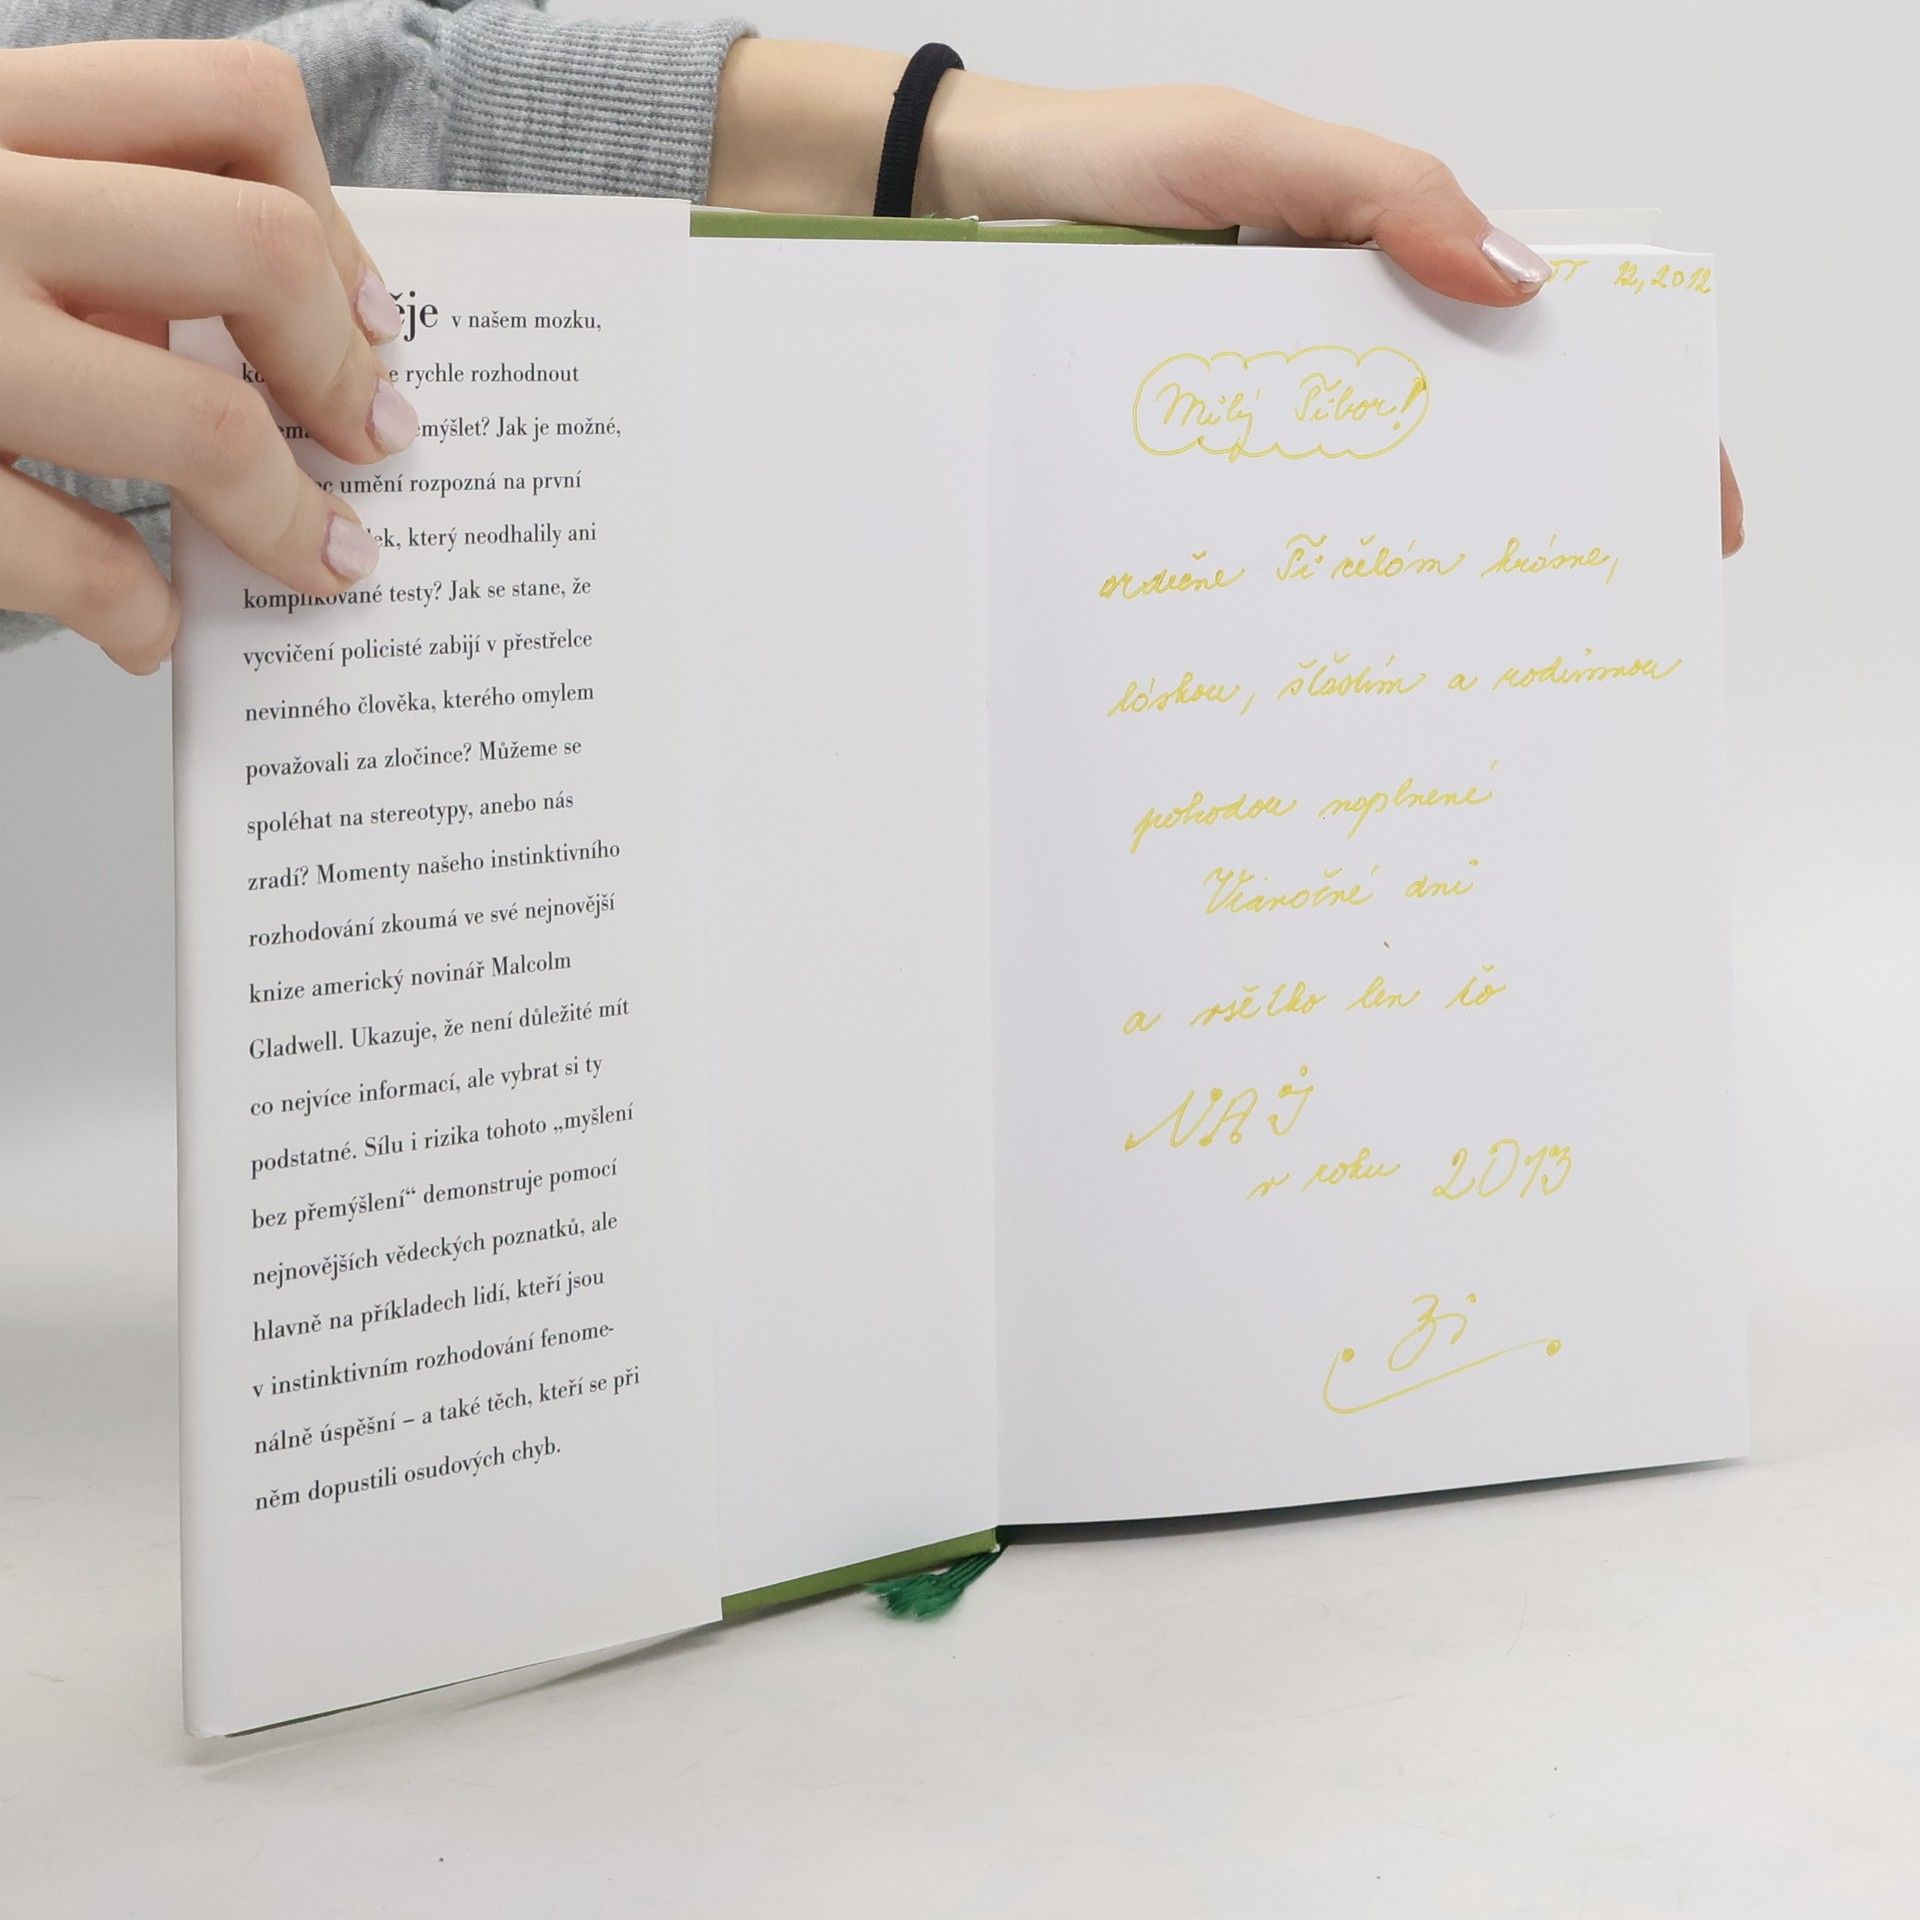 ěje v našem mozku,
e rychle rozhodnout
emýšlet? Jak je možné,
umění rozpozná na první
ek, který neodhalily ani
komplikované testy? Jak se stane, že
vycvičení policisté zabijí v přestřelce
nevinného člověka, kterého omylem
považovali za zločince? Můžeme se
spoléhat na stereotypy, anebo nás
zradí? Momenty našeho instinktivního
rozhodování zkoumá ve své nejnovější
knize americký novinář Malcolm
Gladwell. Ukazuje, že není důležité mít
co nejvíce informací, ale vybrat si ty
podstatné. Sílu i rizika tohoto „myšlení
bez přemýšlení“ demonstruje pomocí
nejnovějších vědeckých poznatků, ale
hlavně na příkladech lidí, kteří jsou
v instinktivním rozhodování fenome-
nálně úspěšní – a také těch, kteří se při
něm dopustili osudových chyb.
TT 12, 2012
Milý Tibor!
srdečne Ti želám krásne,
láskou, šťastím a rodinnou
pohodou naplnené
Vianočné dni
a všetko len čo
NAJ
v roku 2013
Zi